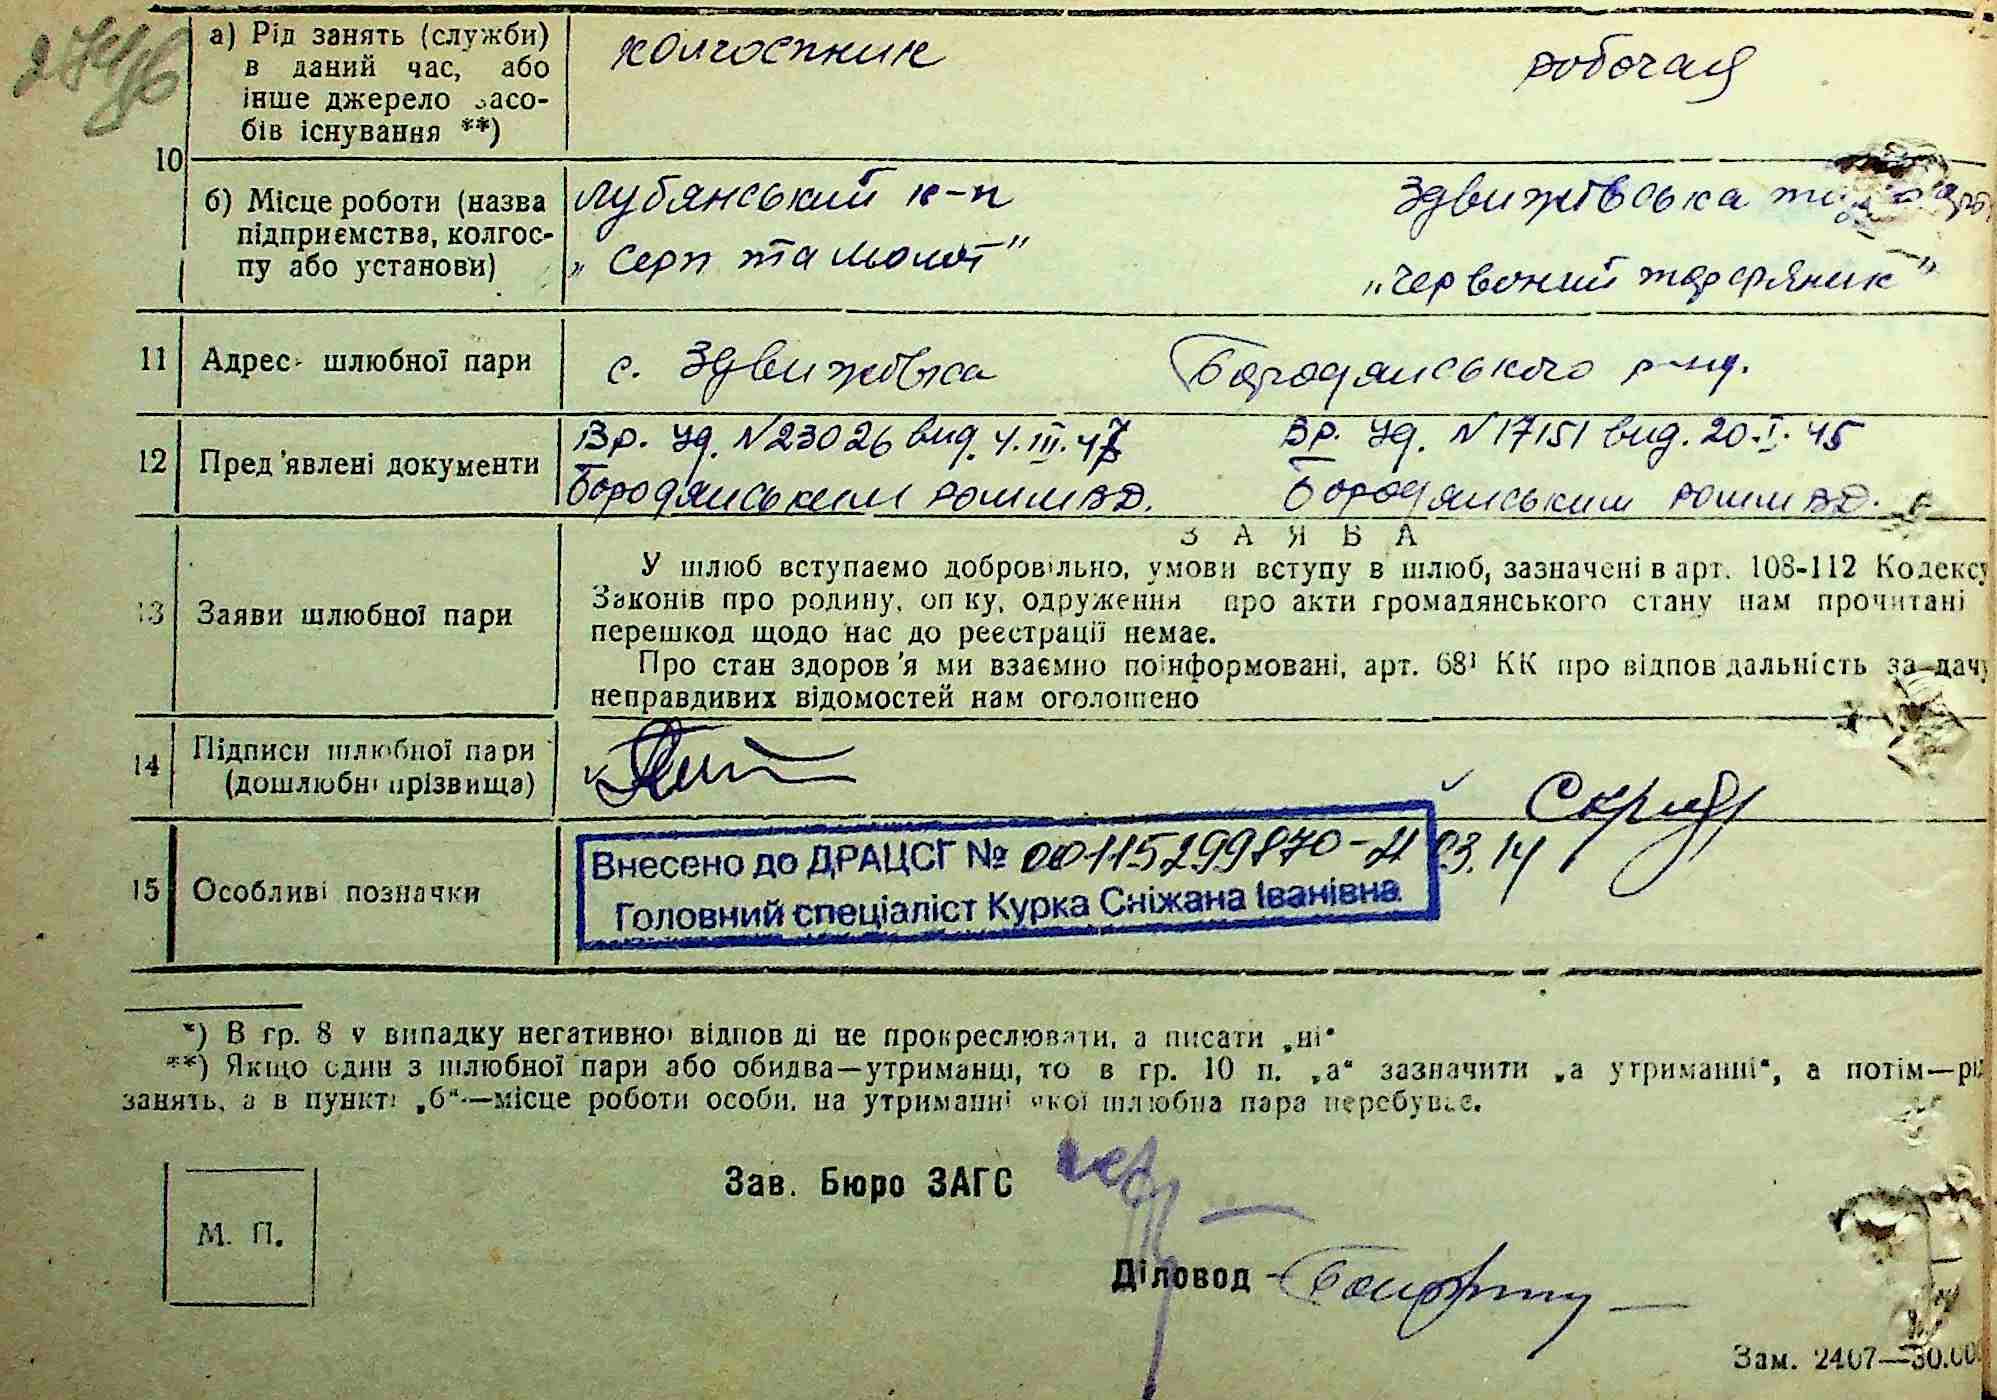 а) Рід занять (служби)
в даний час, або
інше джерело засо-
бів існування **)
колгоспник
робочая
10
б) Місце роботи (назва
підприємства, колгос-
пу або установи)
Лубянський к-п
„Серп та Молот"
Здвижівська
„Червоний торфяник"
11 Адрес шлюбної пари
с. Здвижівка Бородянського р-нд.
12 Пред'явлені документи
Вр. уд. N23026 вид. 4.III.47
Бородянським РОММВД.
Вр. уд. N17151 вид. 20.I.45
Бородянським РОММВД.
13 Заяви шлюбної пари
ЗАЯВА
У шлюб вступаємо добровільно, умови вступу в шлюб, зазначені в арт. 108-112 Кодексу
Законів про родину, опіку, одруження про акти громадянського стану нам прочитані
перешкод щодо нас до реєстрації немає.
Про стан здоров'я ми взаємно поінформовані, арт. 68¹ КК про відповідальність за дачу
неправдивих відомостей нам оголошено
14 Підписи шлюбної пари
(дошлюбні прізвища)
15 Особливі позначки
Внесено до ДРАЦСГ № 00115299870-4 03.14
Головний спеціаліст Курка Сніжана Іванівна
*) В гр. 8 у випадку негативної відповіді не прокреслювати, а писати „ні"
**) Якщо один з шлюбної пари або обидва—утриманці, то в гр. 10 п. „а" зазначити „а утриманні", а потім—рід
занять, а в пункті „б"—місце роботи особи, на утриманні якої шлюбна пара перебуває.
Зав. Бюро ЗАГС
М. П.
Діловод
Зам. 2407—30.00